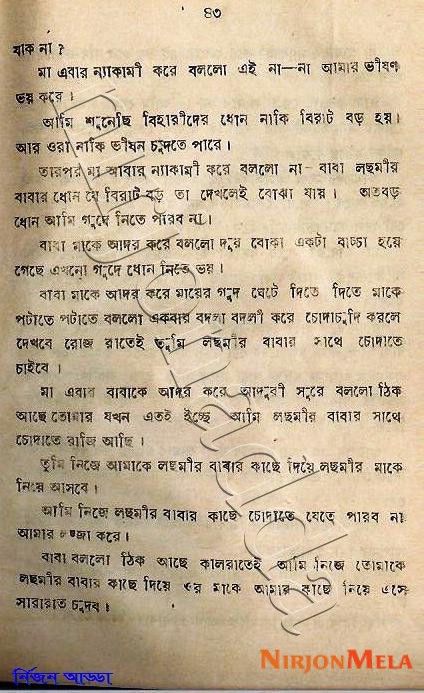 ৪৩
যাক না ?
মা এবার ন্যাকামী করে বললো এই না—না আমার ভীষণ
ভয় করে ।
আমি শুনেছি বিহারীদের ধোন নাকি বিরাট বড় হয়।
আর ওরা নাকি ভীষন চুদতে পারে ।
তারপর মা আবার ন্যাকামী করে বললো না- বাবা লছমীর
বাবার ধোন যে বিরাট বড় তা দেখলেই বোঝা যায় । অতবড়
ধোন আমি গুদে নিতে পারব না।
বাবা মাকে আদর করে বললো দূর বোকা একটা বাচ্চা হয়ে
গেছে এখনো গুদে ধোন নিতে ভয় ।
বাবা মাকে আদর করে মায়ের গুদ ঘেটে দিতে দিতে মাকে
পটাতে পটাতে বললো একবার বদলা বদলী করে চোদাচুদি করলে
দেখবে রোজ রাতেই তুমি লছমীর বাবার সাথে চোদাতে
চাইবে ।
মা এবার বাবাকে আদর করে আদুরী সুরে বললো ঠিক
আছে তোমার যখন এতই ইচ্ছে আমি লছমীর বাবার সাথে
চোদাতে রাজি আছি ।
তুমি নিজে আমাকে লছমীর বাবার কাছে দিয়ে লছমীর মাকে
নিয়ে আসবে ।
আমি নিজে লছমীর বাবার কাছে চোদাতে যেতে পারব না
আমার লজ্জা করে ।
বাবা বললো ঠিক আছে কালরাতেই আমি নিজে তোমাকে
লছমীর বাবার কাছে দিয়ে ওর মাকে আমার কাছে নিয়ে এসে
সারারাত চুদব ।
নির্জন আড্ডা
NIRJONMELA